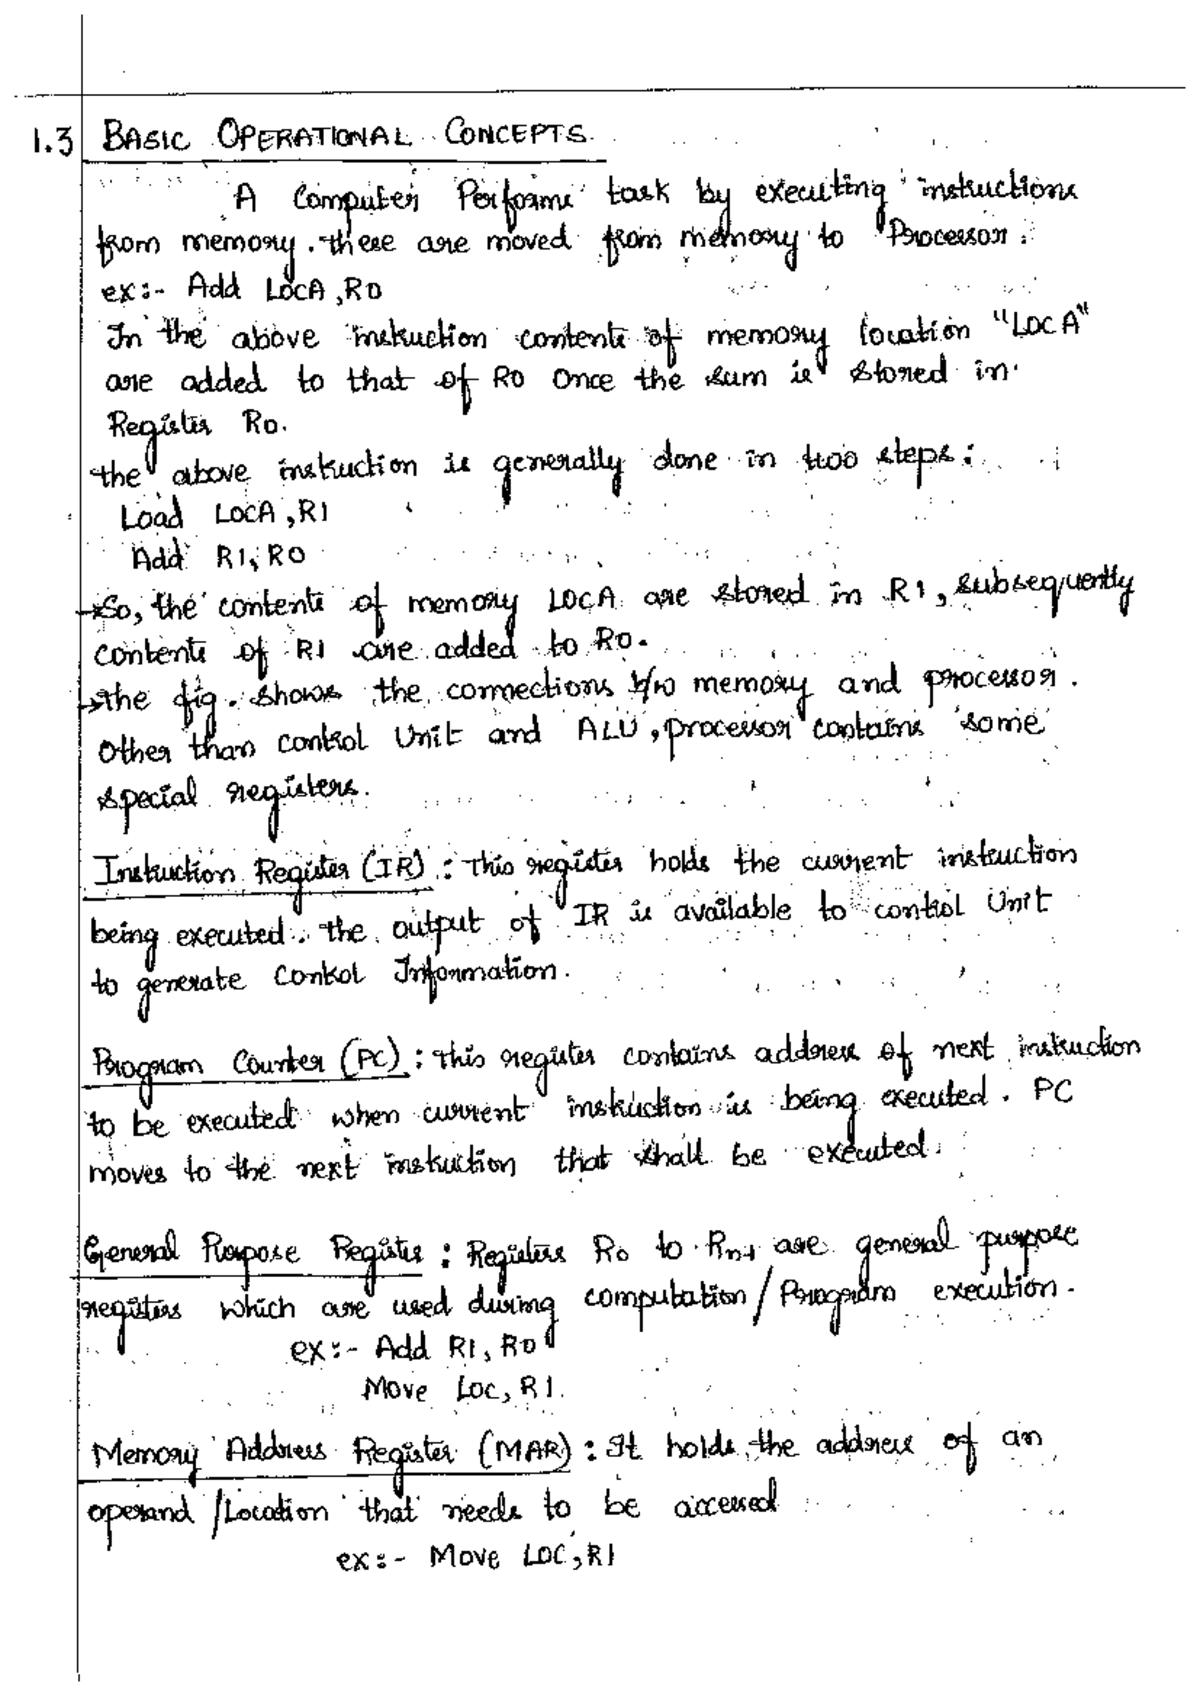 1.3 BASIC OPERATIONAL CONCEPTS.
A Computer Performs task by executing instructions
from memory. these are moved from memory to Processor.
ex:- Add LOCA, R0
In the above instruction contents of memory location "LOCA"
are added to that of R0 Once the sum is stored in
Register R0.
the above instruction is generally done in two steps:
Load LOCA, R1
Add R1, R0
→So, the contents of memory LOCA are stored in R1, subsequently
contents of R1 are added to R0.
→the fig. shows the connections b/w memory and processor.
Other than control Unit and ALU, processor contains some
special registers.
Instruction Register (IR) : This register holds the current instruction
being executed. the output of IR is available to control Unit
to generate Control Information.
Program Counter (PC) : This register contains address of next instruction
to be executed when current instruction is being executed. PC
moves to the next instruction that shall be executed.
General Purpose Register : Registers R0 to Rn-1 are general purpose
registers which are used during computation/Program execution.
ex:- Add R1, R0
Move Loc, R1.
Memory Address Register (MAR) : It holds the address of an
operand /Location that needs to be accessed
ex:- Move LOC, R1